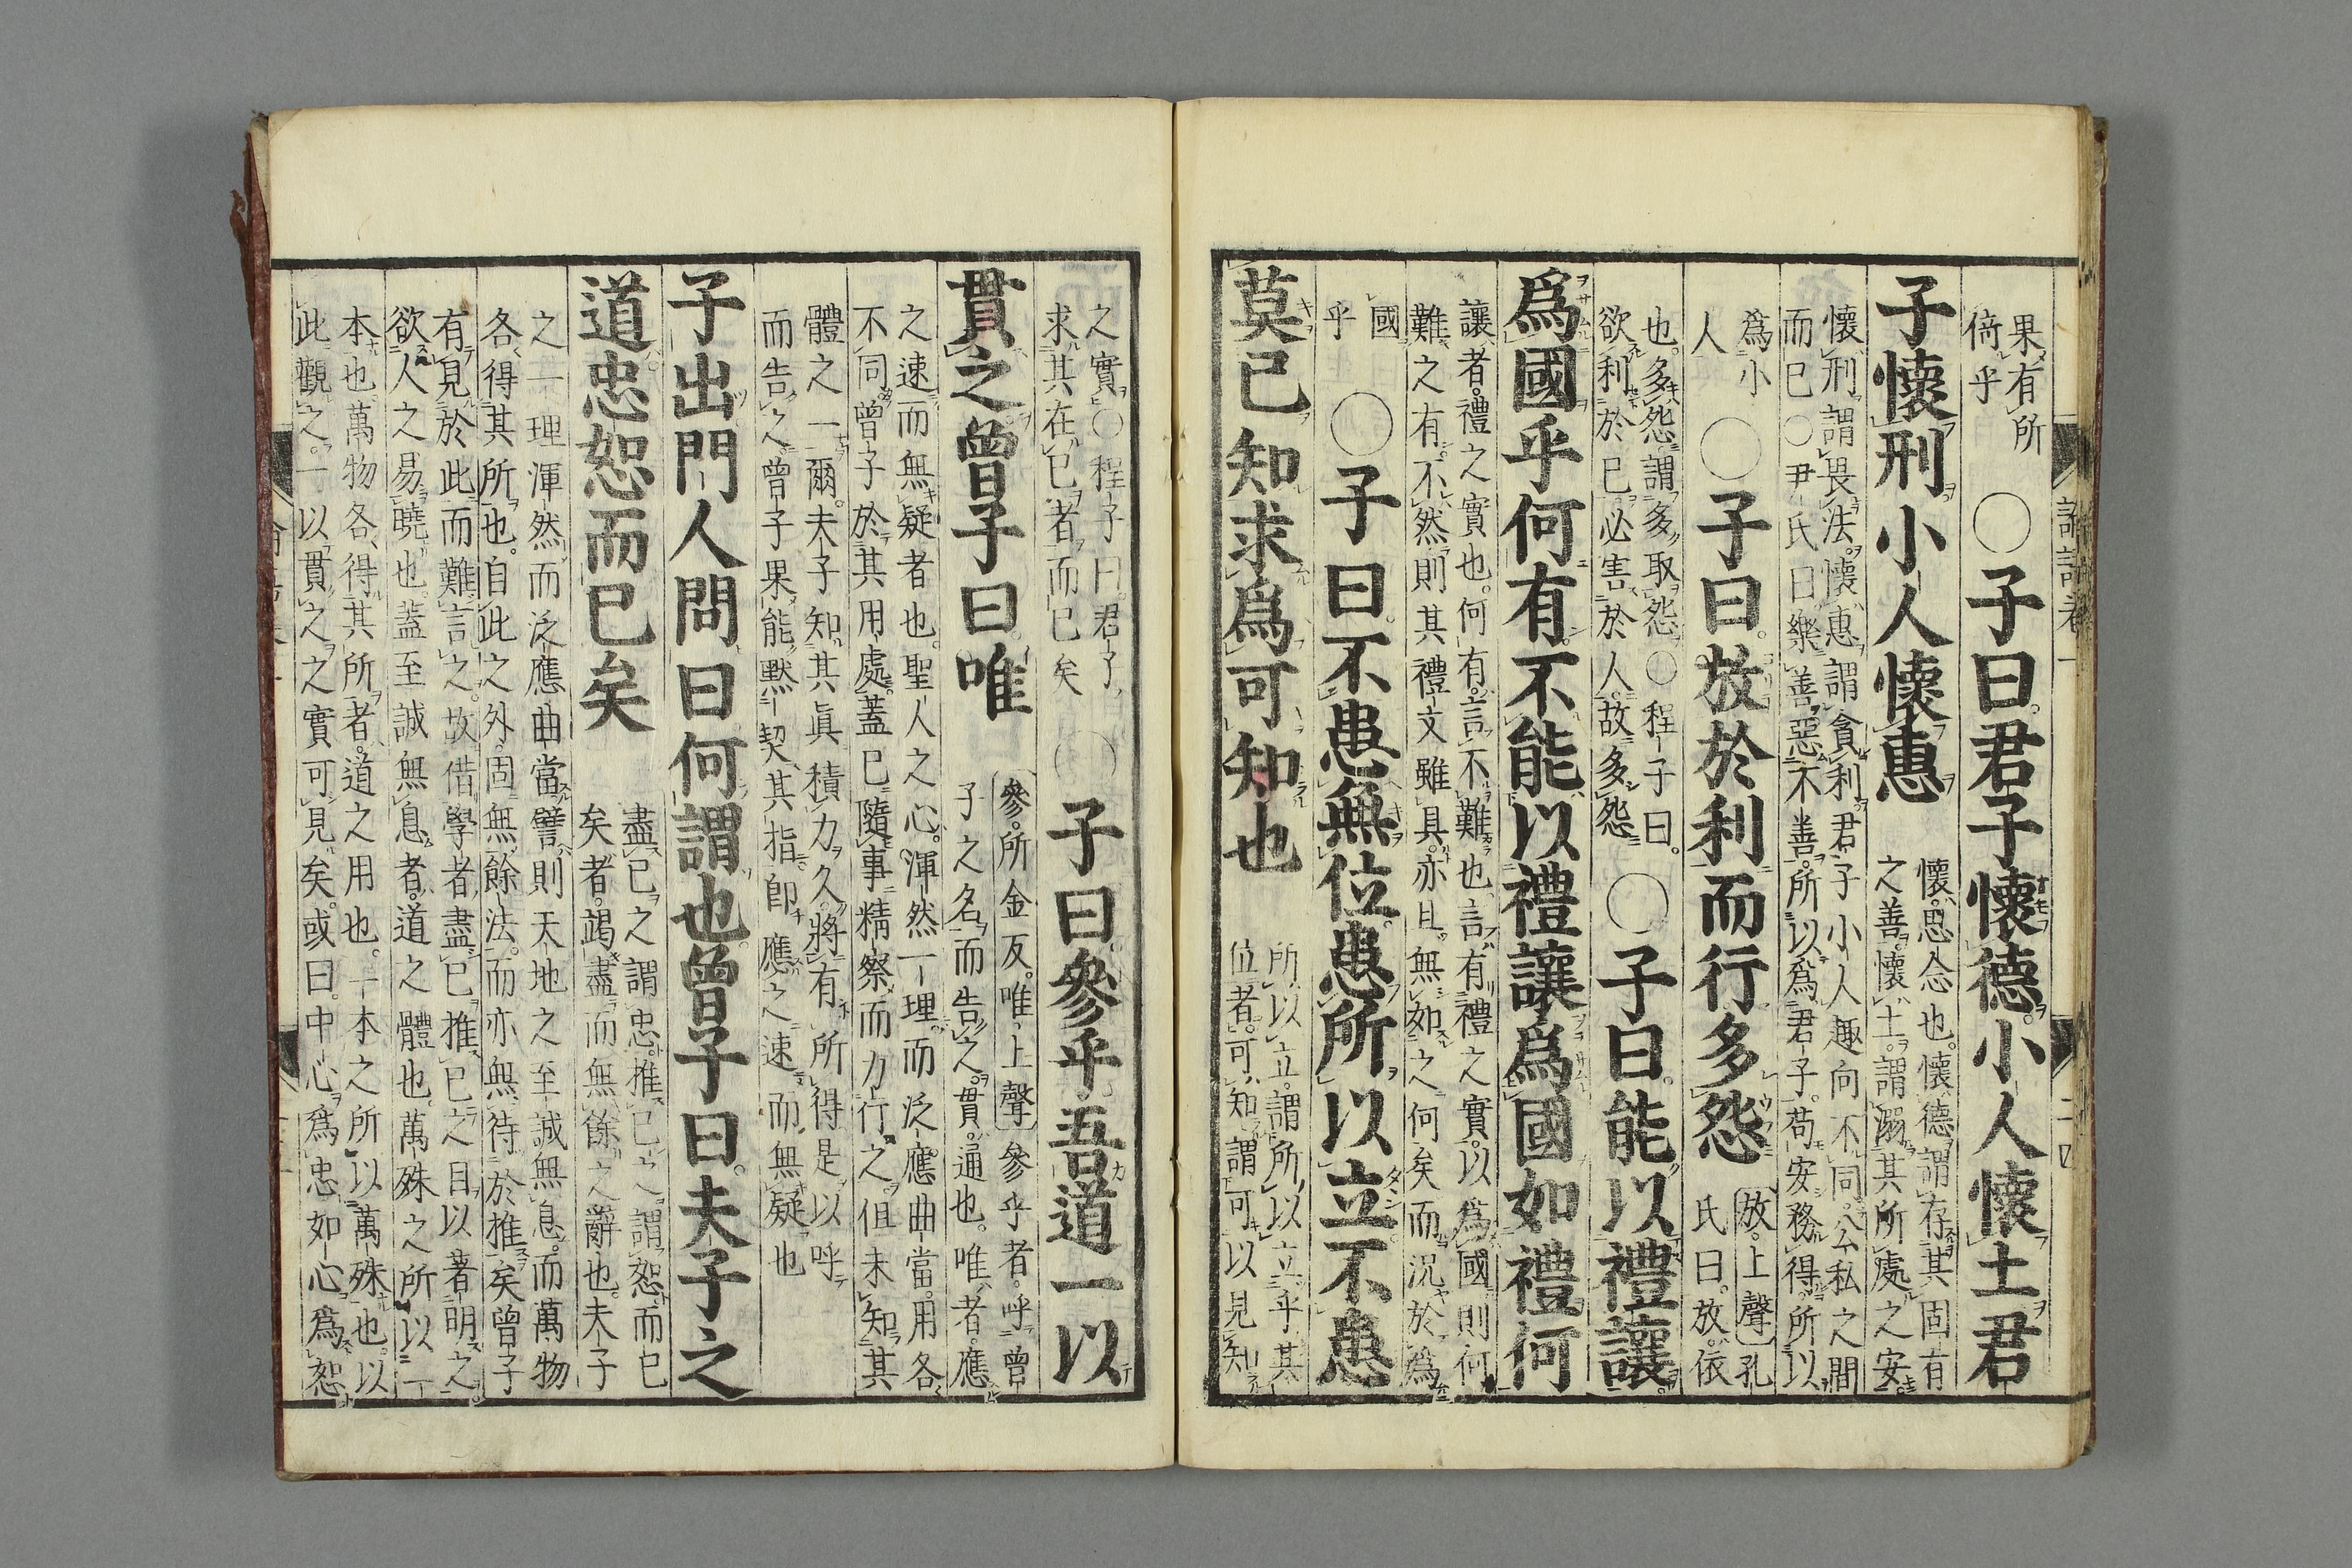 果有所
倚乎
○子曰君子懷德小人懷土君
子懷刑小人懷惠
懷思念也懷德謂存其固有
之善懷土謂溺其所處之安
懷刑謂畏法懷惠謂貪利君子小人趣向不同公私之間
而已○尹氏曰樂善惡不善所以爲君子苟安務得所以
爲小
人
○子曰放於利而行多怨
放上聲孔
氏曰放依
也多怨謂多取怨○程子曰
欲利於己必害於人故多怨
○子曰能以禮讓
爲國乎何有不能以禮讓爲國如禮何
讓者禮之實也何有言不難也言有禮之實以爲國則何
難之有不然則其禮文雖具亦且無如之何矣而況於爲
國
乎
○子曰不患無位患所以立不患
莫己知求爲可知也
所以立謂所以立乎其
位者可知謂可以見知
之實○程子曰君子
求其在己者而已矣
○子曰參乎吾道一以
貫之曾子曰唯
參所金反唯上聲參乎者呼曾
子之名而告之貫通也唯者應
之速而無疑者也聖人之心渾然一理而泛應曲當用各
不同曾子於其用處蓋已隨事精察而力行之但未知其
體之一爾夫子知其眞積力久將有所得是以呼
而告之曾子果能默契其指卽應之速而無疑也
子出門人問曰何謂也曾子曰夫子之
道忠恕而已矣
盡己之謂忠推己之謂恕而已
矣者竭盡而無餘之辭也夫子
之一理渾然而泛應曲當譬則天地之至誠無息而萬物
各得其所也自此之外固無餘法而亦無待於推矣曾子
有見於此而難言之故借學者盡己推己之目以著明之
欲人之易曉也蓋至誠無息者道之體也萬殊之所以一
本也萬物各得其所者道之用也一本之所以萬殊也以
此觀之一以貫之之實可見矣或曰中心爲忠如心爲恕